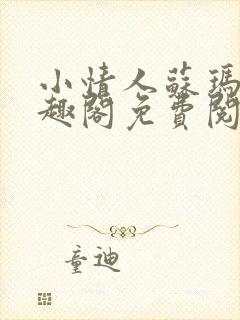 小情人蘇瑪
趣閣免費閱
童迪